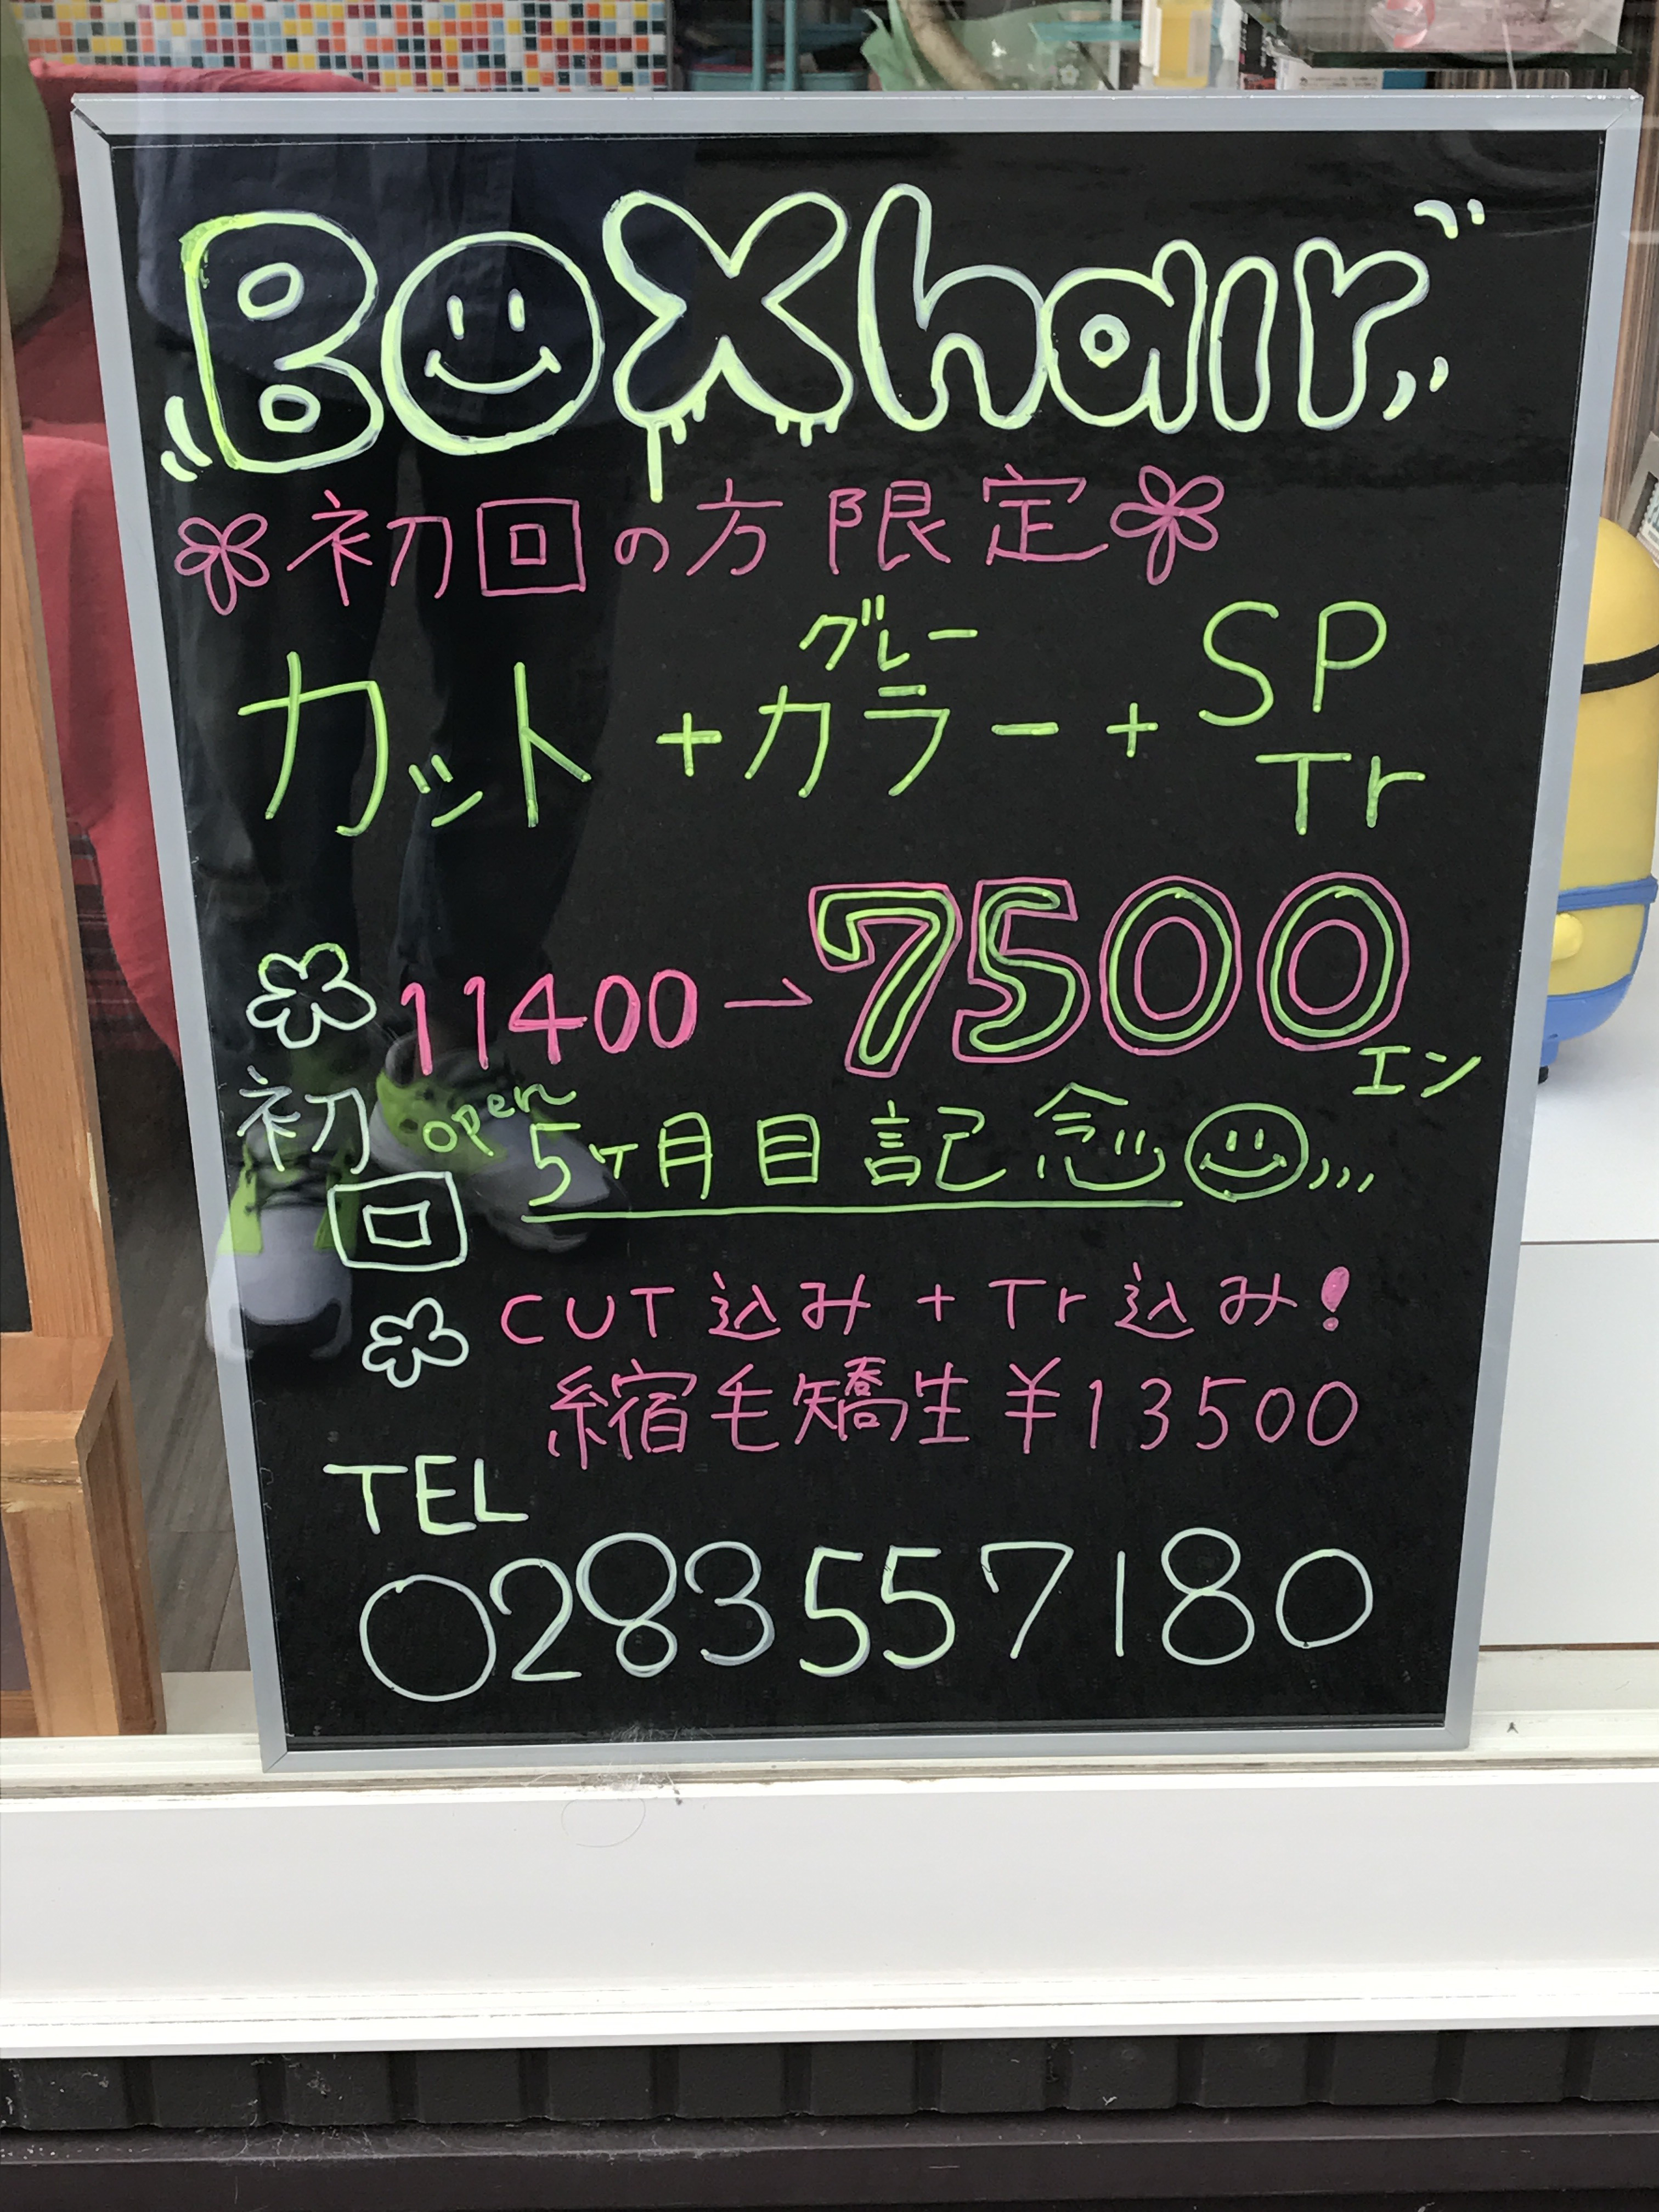 BOXhair
初回の方限定
グレー
カット+カラー+SP
Tr
11400→7500エン
初回
open
5ヶ月目記念
CUT込み+Tr込み!
縮毛矯生¥13500
TEL
0283557180